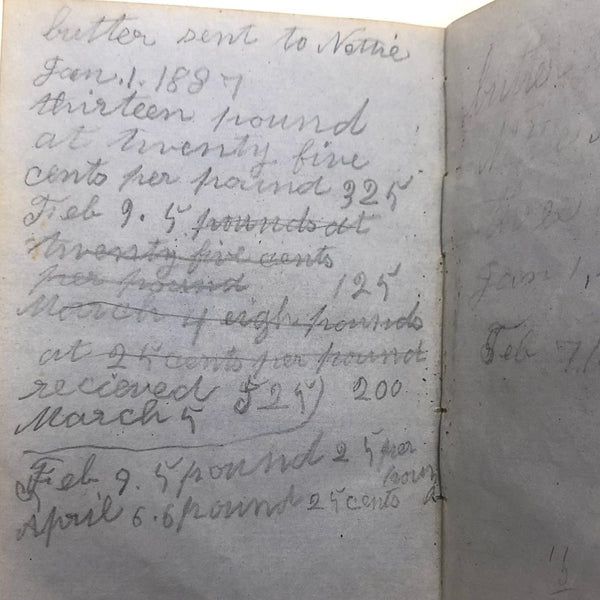 butter sent to Nettie
Jan. 1. 1887
thirteen pound
at twenty five
cents per pound 325
Feb 9. 5 pounds at
twenty five cents
per pound 125
March 4 eigh pounds
at 25 cents per pound
recieved 525) 200
March 5
Feb 9. 5 pound 25 per
pound
April 6. 6 pound 25 cents
Jan 1.
Feb